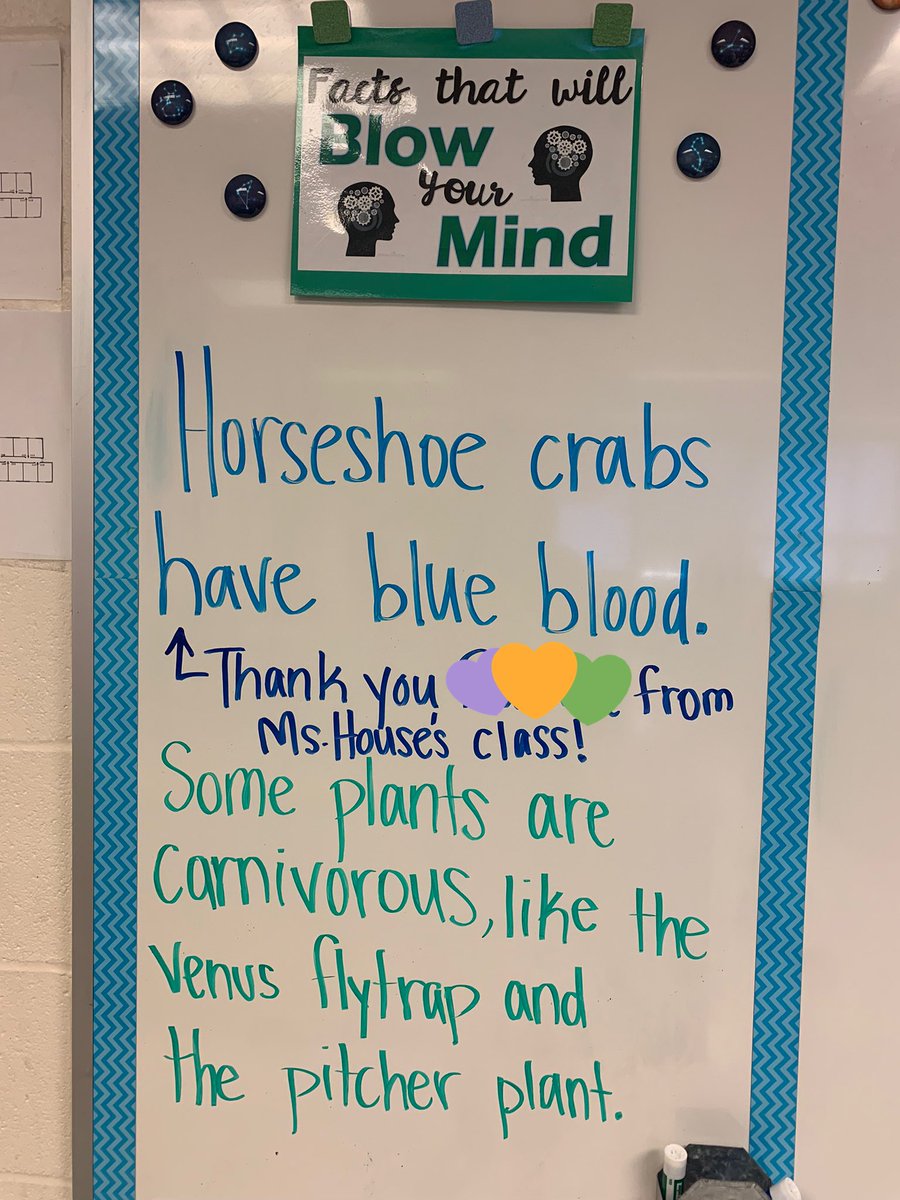 Facts that will
Blow
your
Mind
Horseshoe crabs
have blue blood.
Thank you, from
Ms. House's class!
Some plants are
carnivorous, like the
venus flytrap and
the pitcher plant.